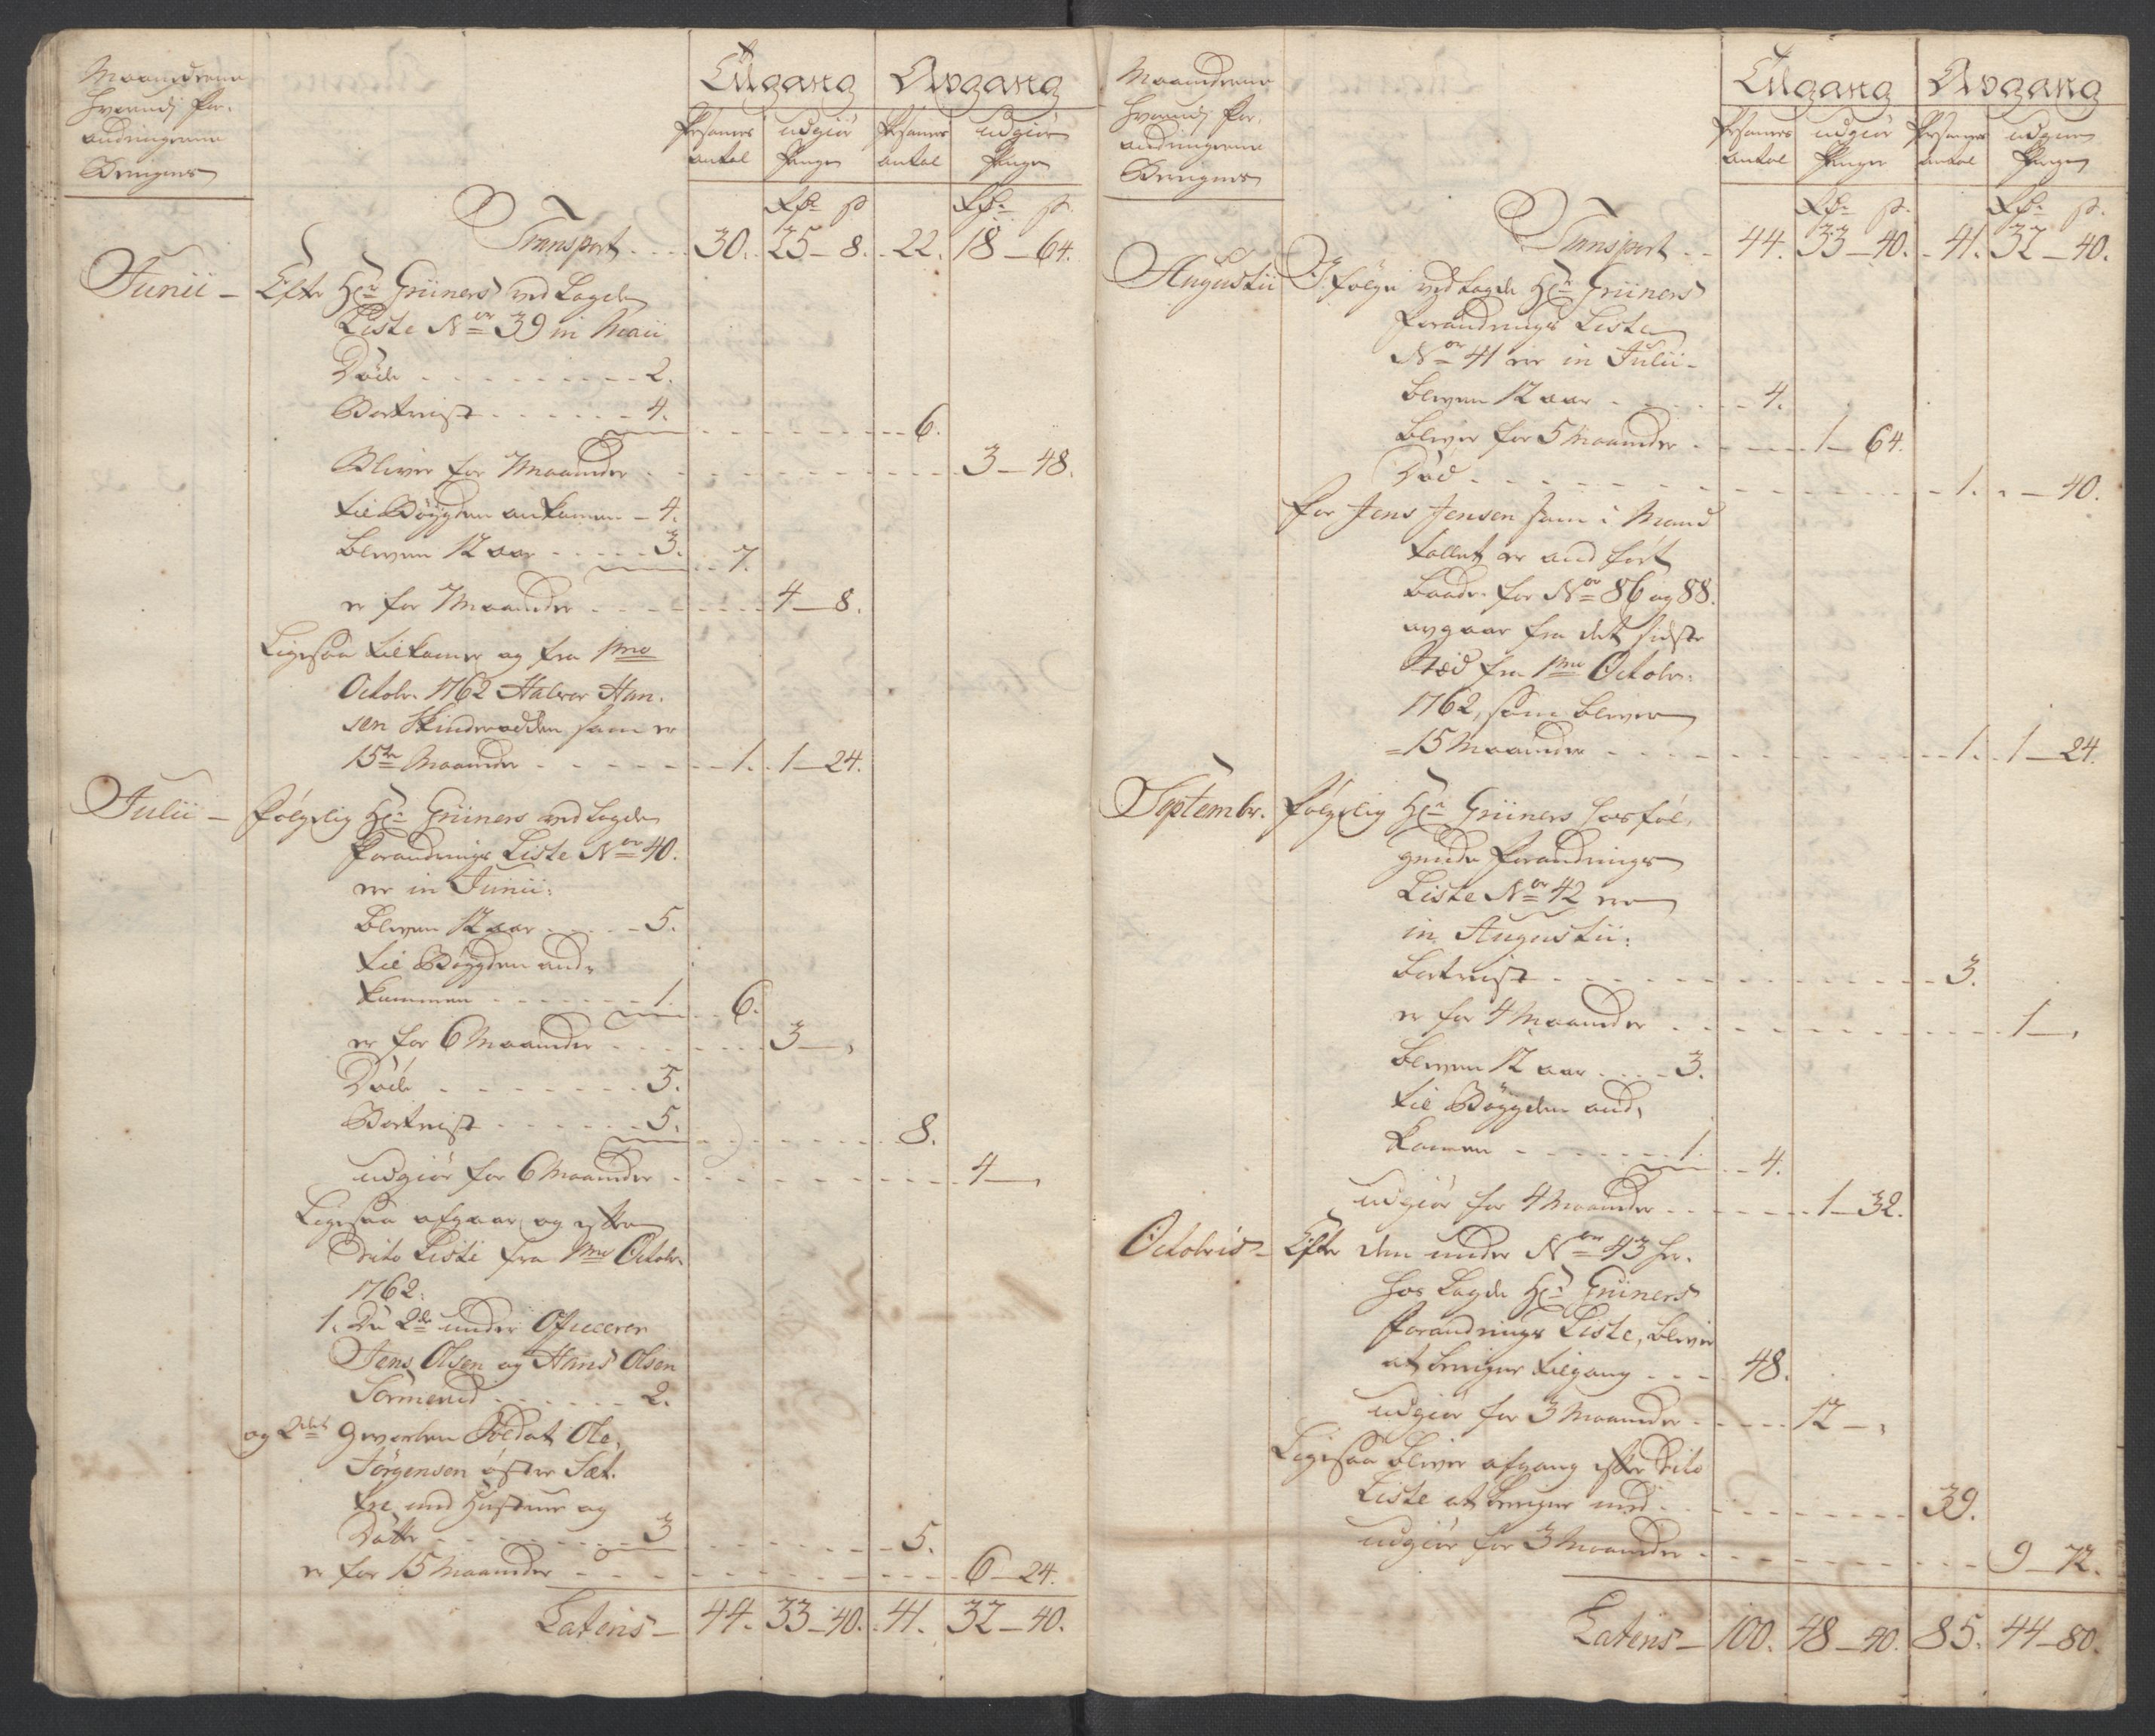 Maanederne
hvorudj For-
andringerne
Beregnes
Tilgang Avgang
Persohners antal udgiør Penger Persohners antal udgiør Penger
Rdr. s. Rdr. s.
Transport - - - 30. 25 - 8. 22. 18 - 64.
Junii - Efter Hr. Grüners vedlagde
Liste No. 39 in Maii
Døde - - - 2.
Bortreist - - - 4. - - - 6.
Bliver for 7 Maaneder - - - 3 - 48.
til Bøygden ankomne - 4.
bleven 12 aar - - - 3. - - 7.
er for 7 Maaneder - - - 4 - 8.
Ligesaa tilkomer og fra 1mo
Octobr. 1762 Halvor Han-
sen Skinderødden, som er
15ten Maaneder - - - 1. 1 - 24.
Julii - følgelig Hr. Grüners vedlagde
Forandrings Liste No. 40.
ere in Junii:
bleven 12 aar - - - 5.
til Bøygden and-
kommen - - - 1. - - 6.
er for 6 Maaneder - - - 3 - ,
Døde - - - 3.
Bortreist - - - 5. - - - 8.
udgiør for 6 Maaneder - - - 4 - ,
Ligesaa afgaar og efter
dito Liste fra 1mo Octobr.
1762:
1. De 2de under Officerer
Jens Olsen og Hans Olsen
Sørmerud - - - 2.
og 2det Gevorben Soldat Ole
Jörgensen öster Sæt-
tre med Hustrue og
Datter - - - 3 - - - 5.
er for 15 Maaneder - - - 6 - 24.
Latens - 44. 33 - 40. 41. 32 - 40.
Maanederne
hvorudj For-
andringerne
Beregnes
Tilgang Avgang
Persohners antal udgiør Penger Persohners antal udgiør Penger
Rdr. s. Rdr. s.
Transport - - 44. 33 - 40. - 41. 32 - 40.
Augustii I følge vedlagde Hr. Grüners
Forandrings Liste
No. 41 ere in Julii -
bleven 12 aar - - - 4.
bliver for 5 Maaneder - - - 1 - 64.
Død - - - 1. - 40.
for Jens Jensen som i Mand
tallet er and ført
baade for No. 86 og 88.
avgaar fra det sidste
Stæd fra 1mo Octobr:
1762, som bliver
15 Maaneder - - - 1. 1 - 24.
Septembr. følgelig Hr. Grüners hosføl-
gende Forandrings
Liste No. 42 ere
in Augustii:
bortreist - - - 3.
er for 4 Maaneder - - - 1 - ,
bleven 12 aar - - - 3.
til Bøygden and-
kommen - - - 1. - - 4.
udgiør for 4 Maaneder - - - 1 - 32.
Octobris - Efter den under No. 43 her-
hos lagde Hr. Grüners
Forandrings Liste, bliver
at beregne tilgang - - - 48.
udgiør for 3 Maaneder - - - 12 - ,
Ligesaa bliver afgang efter dito
Liste at beregne med - - - 39.
udgiør for 3 Maaneder - - - 9 - 72.
Latens - 100. 48 - 40. 85. 44 - 80.